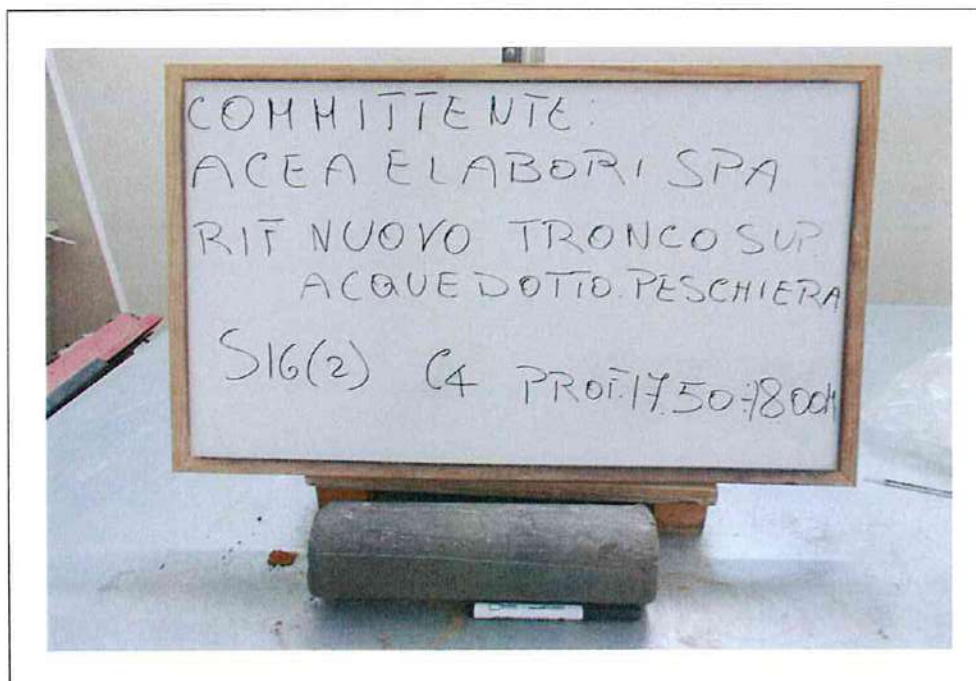 COMMITTENTE:
ACEA ELABORI SPA
RIF NUOVO TRONCO SUP.
ACQUEDOTTO.PESCHIERA
S16(2) C4 PROF.17.50÷18.00M